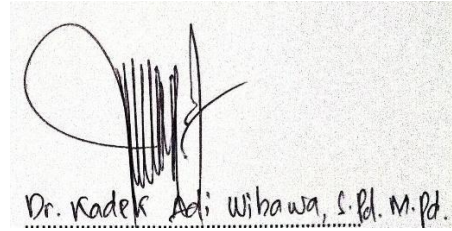 Dr. Kadek Adi Wibawa, S.Pd. M.Pd.